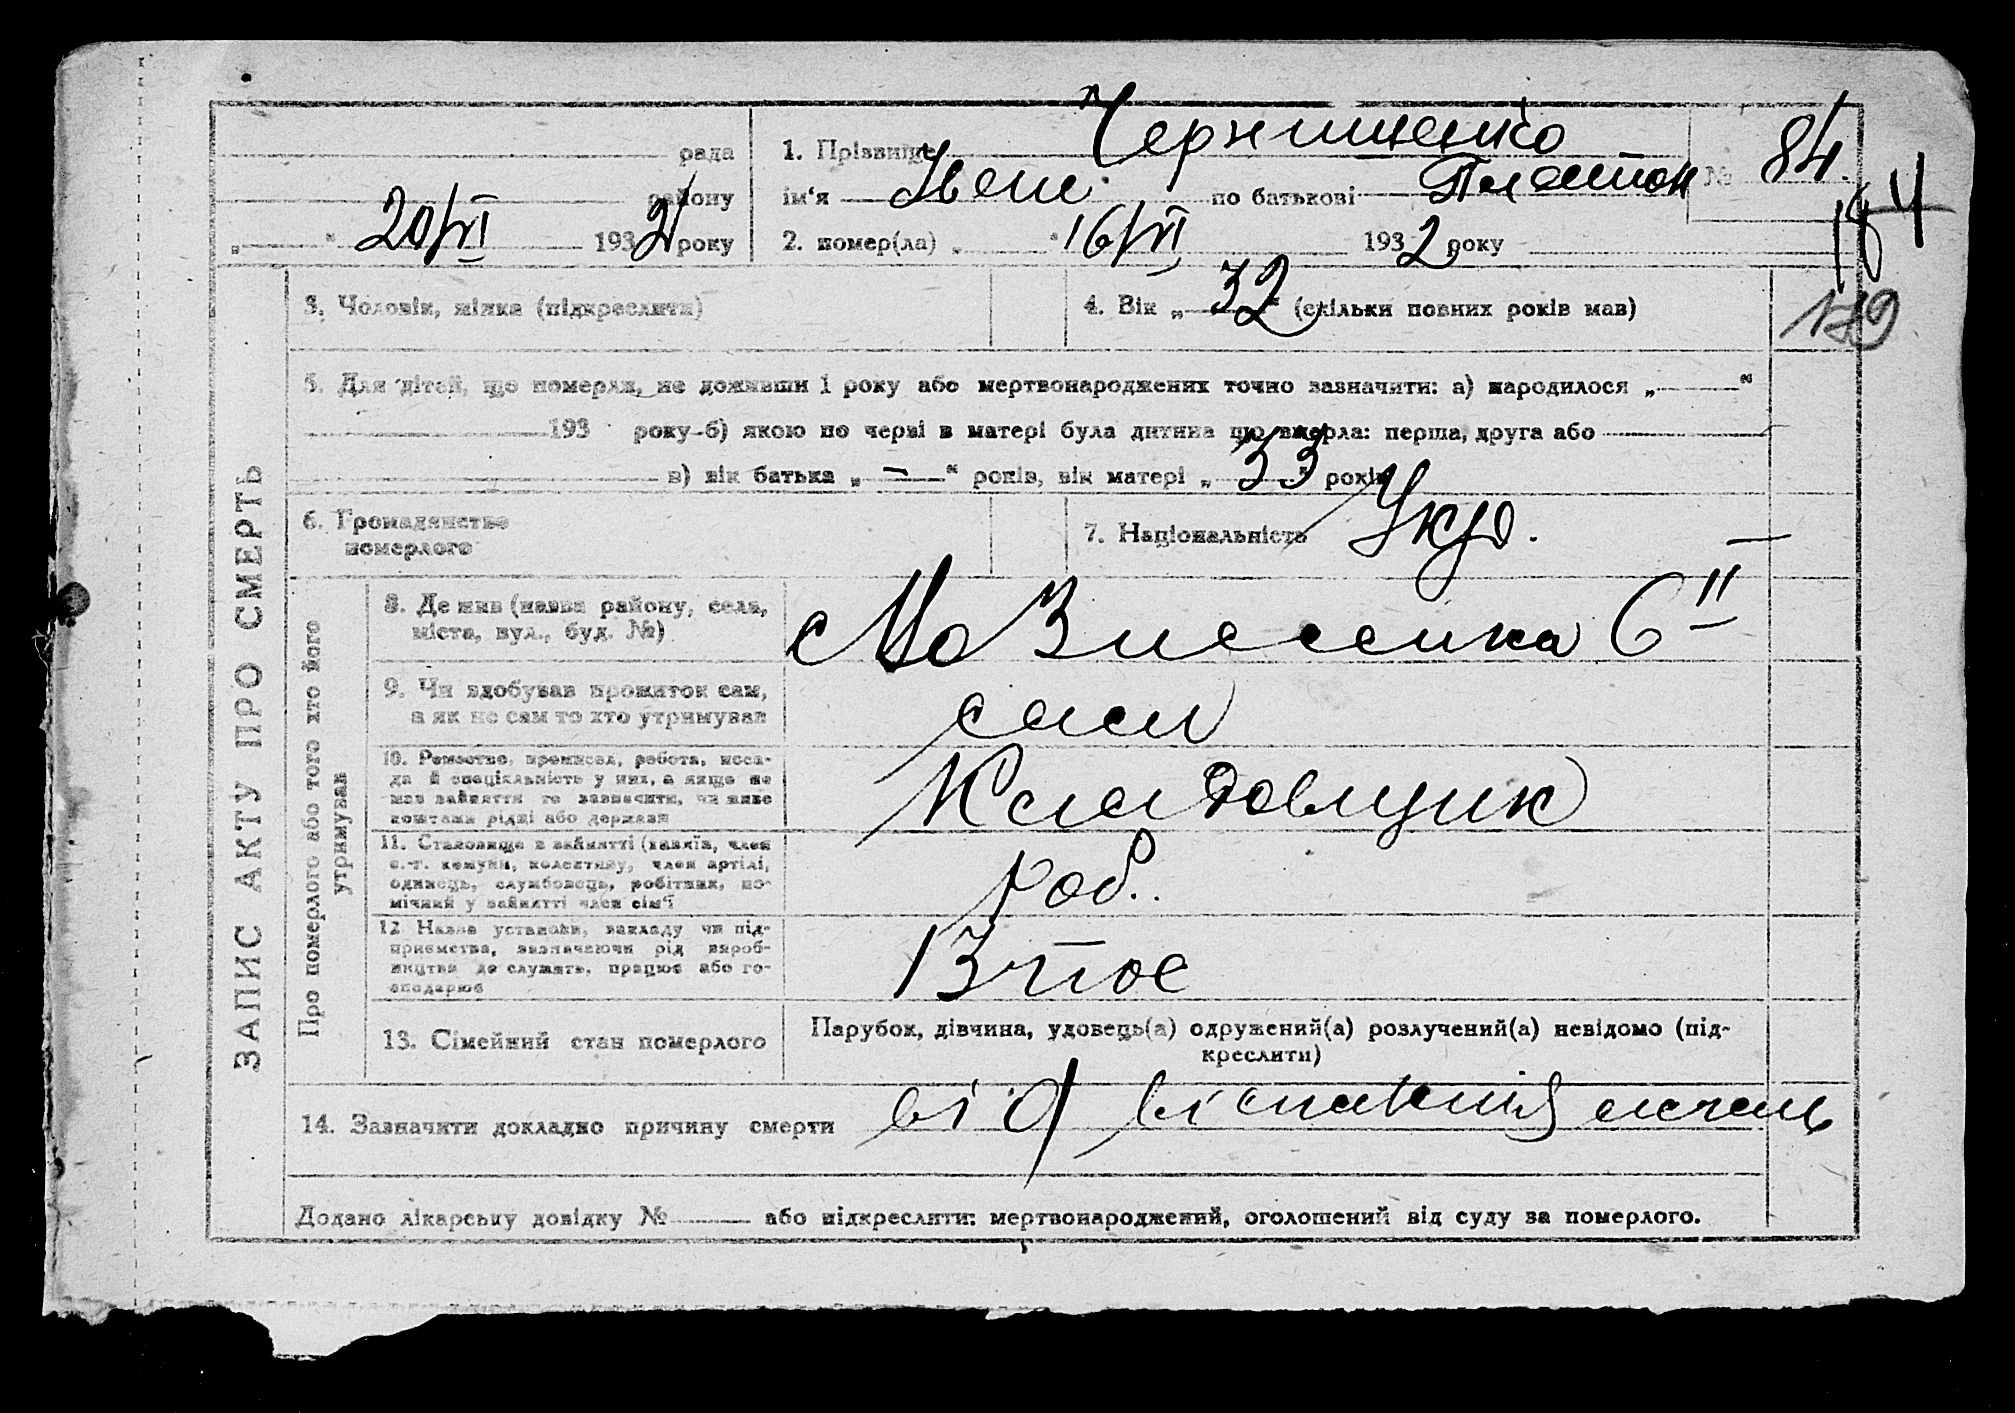 рада
району
„ “ 20/VI 1932 року
1. Прізвище Чернишенко
ім‘я Іван по батькові Платон
2. помер(ла) „ “ 16/VI 1932 року
№ 84.
184
179
ЗАПИС АКТУ ПРО СМЕРТЬ
3. Чоловік, жінка (підкреслити)
4. Вік „ 32 “ (скільки повних років мав)
5. Для дітей, що померли, не доживши 1 року або мертвонароджених точно зазначити: а) народилося „ “
193 року б) якою по черві в матері була дитина що вмерла: перша, друга або
в) вік батька „ — “ років, вік матері „ 33 “ років
6. Громадянство
померлого
7. Національність Укр.
Про померлого або того хто його
утримував
8. Де жив (назва району, села,
міста, вул., буд. №)
6
9. Чи здобував прожиток сам,
а як не сам то хто утримував
сам
10. Ремество, промисел, робота, поса-
да й спеціяльність у них, а якщо не
мав заняття то зазначити, чи живе
коштами рідні або держави
Кладовщик
11. Становище в занятті (хазяїн, член
с.-г. комуни, колективу, член артілі,
одинець, службовець, робітник, по-
мічний у занятті член сім‘ї
роб.
12 Назва установи, закладу чи під-
приємства, зазначаючи рід вироб-
ництва де служить, працює або го-
сподарює
13. Сімейний стан померлого
Парубок, дівчина, удовець(а) одружений(а) розлучений(а) невідомо (під-
креслити)
14. Зазначити докладно причину смерти
від
Додано лікарську довідку № або підкреслити: мертвонароджений, оголошений від суду за померлого.